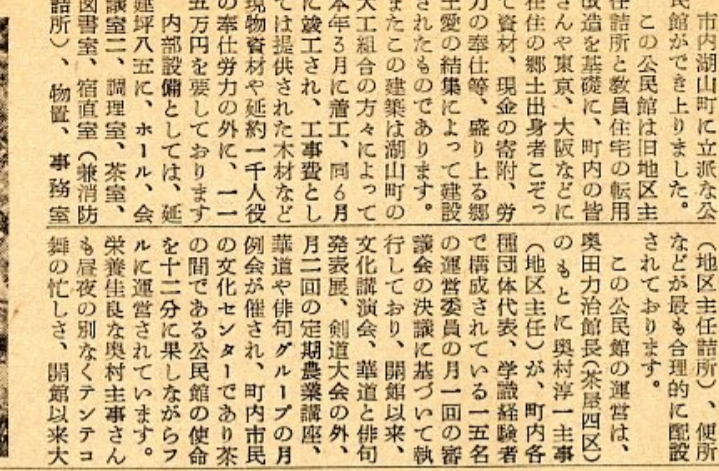 市内湖山町に立派な公
民館ができ上りました。
この公民館は旧地区主
任詰所と教員住宅の転用
改造を基礎に、町内の皆
さんや東京、大阪などに
在住の郷土出身者こぞっ
て資材、現金の寄附、労
力の奉仕等、盛り上る郷
土愛の結集によって建設
されたものであります。
またこの建築は湖山町の
大工組合の方々によって
本年3月に着工、同6月
に竣工され、工事費とし
ては提供された木材など
現物資材や延約一千人役
の奉仕労力の外に、一一
五万円を要しております
内部設備としては、延
建坪八五に、ホール、会
議室二、調理室、茶室、
図書室、宿直室(兼消防
詰所)、物置、事務室
(地区主任詰所)、便所
などが最も合理的に配設
されております。
この公民館の運営は、
奥田力治館長(茶屋四区)
のもとに奥村淳一主事
(地区主任)が、町内各
種団体代表、学識経験者
で構成されている一五名
の運営委員の月一回の審
議会の決議に基づいて執
行しており、開館以来、
文化講演会、華道と俳句
発表展、剣道大会の外、
月二回の定期農業講座、
華道や俳句グループの月
例会が催され、町内市民
の文化センターであり茶
の間である公民館の使命
を十二分に果しながらフ
ルに運営されています。
栄養佳良な奥村主事さん
も昼夜の別なくテンテコ
舞の忙しさ、開館以来大